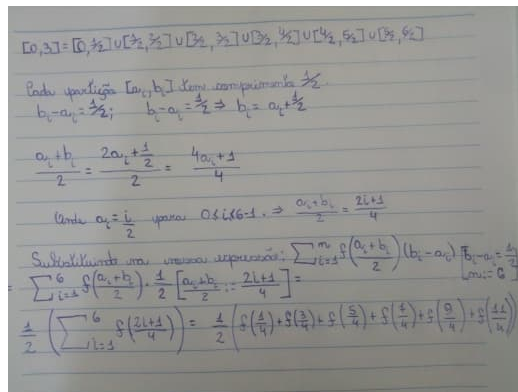 [0,3] = [0,1/2] ∪ [1/2,2/2] ∪ [2/2,3/2] ∪ [3/2,4/2] ∪ [4/2,5/2] ∪ [5/2,6/2]
Cada partição [aᵢ,bᵢ] tem comprimento 1/2.
bᵢ-aᵢ = 1/2; bᵢ-aᵢ = 1/2 ⇒ bᵢ = aᵢ + 1/2
(aᵢ+bᵢ)/2 = (2aᵢ + 1/2)/2 = (4aᵢ+1)/4
Onde aᵢ = i/2 para 0≤i≤6-1. ⇒ (aᵢ+bᵢ)/2 = (2i+1)/4
Substituindo na nossa expressão: ∑ᵢ₌₁ⁿ f((aᵢ+bᵢ)/2)(bᵢ-aᵢ) [bᵢ-aᵢ = 1/2 n := 6]
= ∑ᵢ₌₁⁶ f((aᵢ+bᵢ)/2)·1/2 [(aᵢ+bᵢ)/2 := (2i+1)/4] =
1/2 (∑ᵢ₌₁⁶ f((2i+1)/4)) = 1/2 (f(1/4)+f(3/4)+f(5/4)+f(7/4)+f(9/4)+f(11/4))